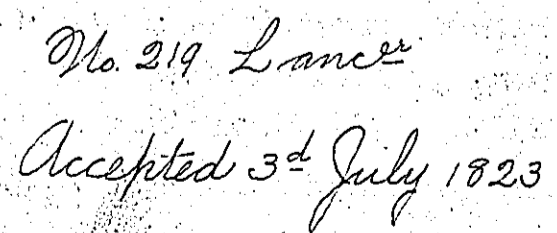 No. 219 Lancer
Accepted 3d July 1823